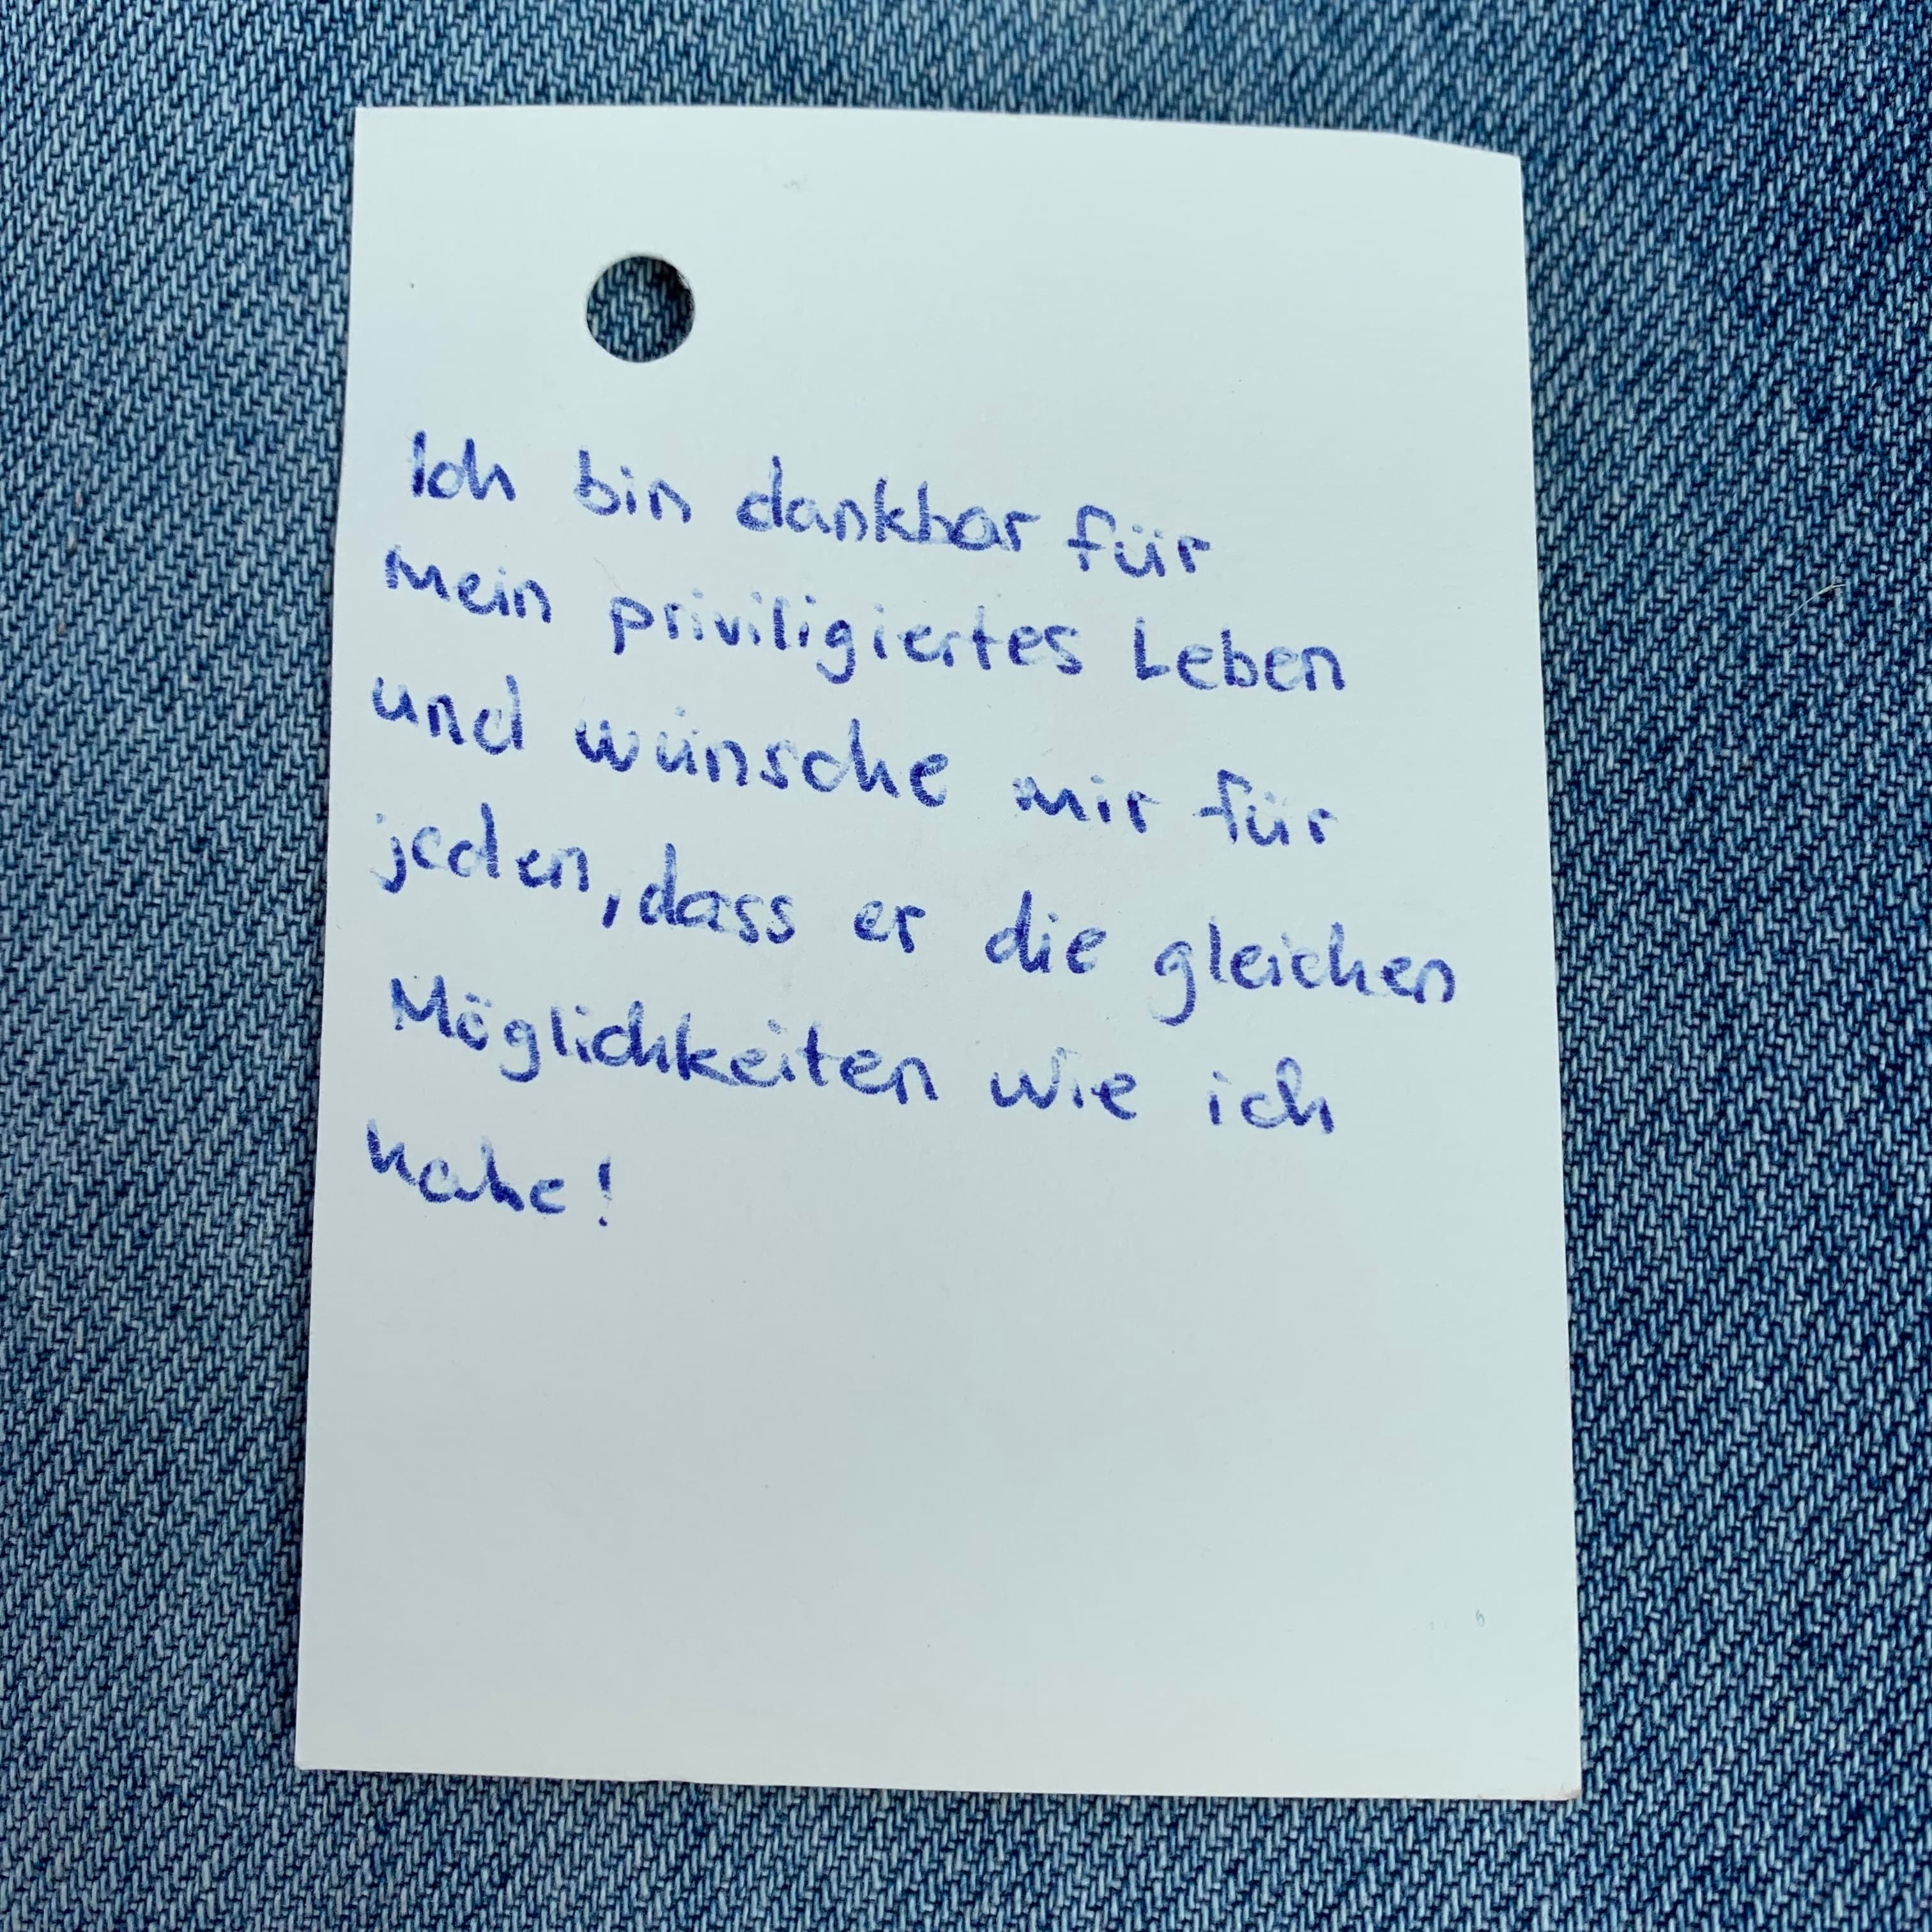 Ich bin dankbar für
mein priviligiertes Leben
und wünsche mir für
jeden, dass er die gleichen
Möglichkeiten wie ich
habe!